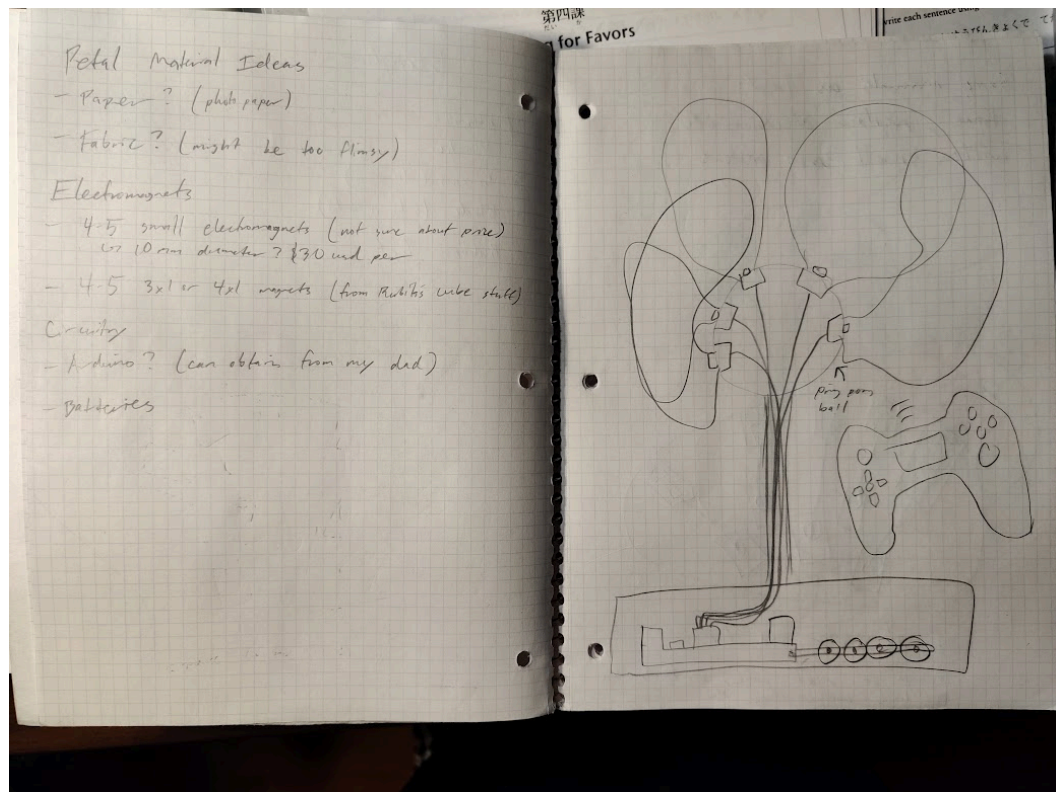 第四課
だい か
g for Favors
write each sentence using
Petal Material Ideas
- Paper? (photo paper)
- Fabric? (might be too flimsy)
Electromagnets
- 4-5 small electromagnets (not sure about price)
↳ 10 mm diameter? $30 usd per
- 4-5 3x1 or 4x1 magnets (from Rubik's cube stuff)
Circuitry
- Arduino? (can obtain from my dad)
- Batteries
ping pong
ball